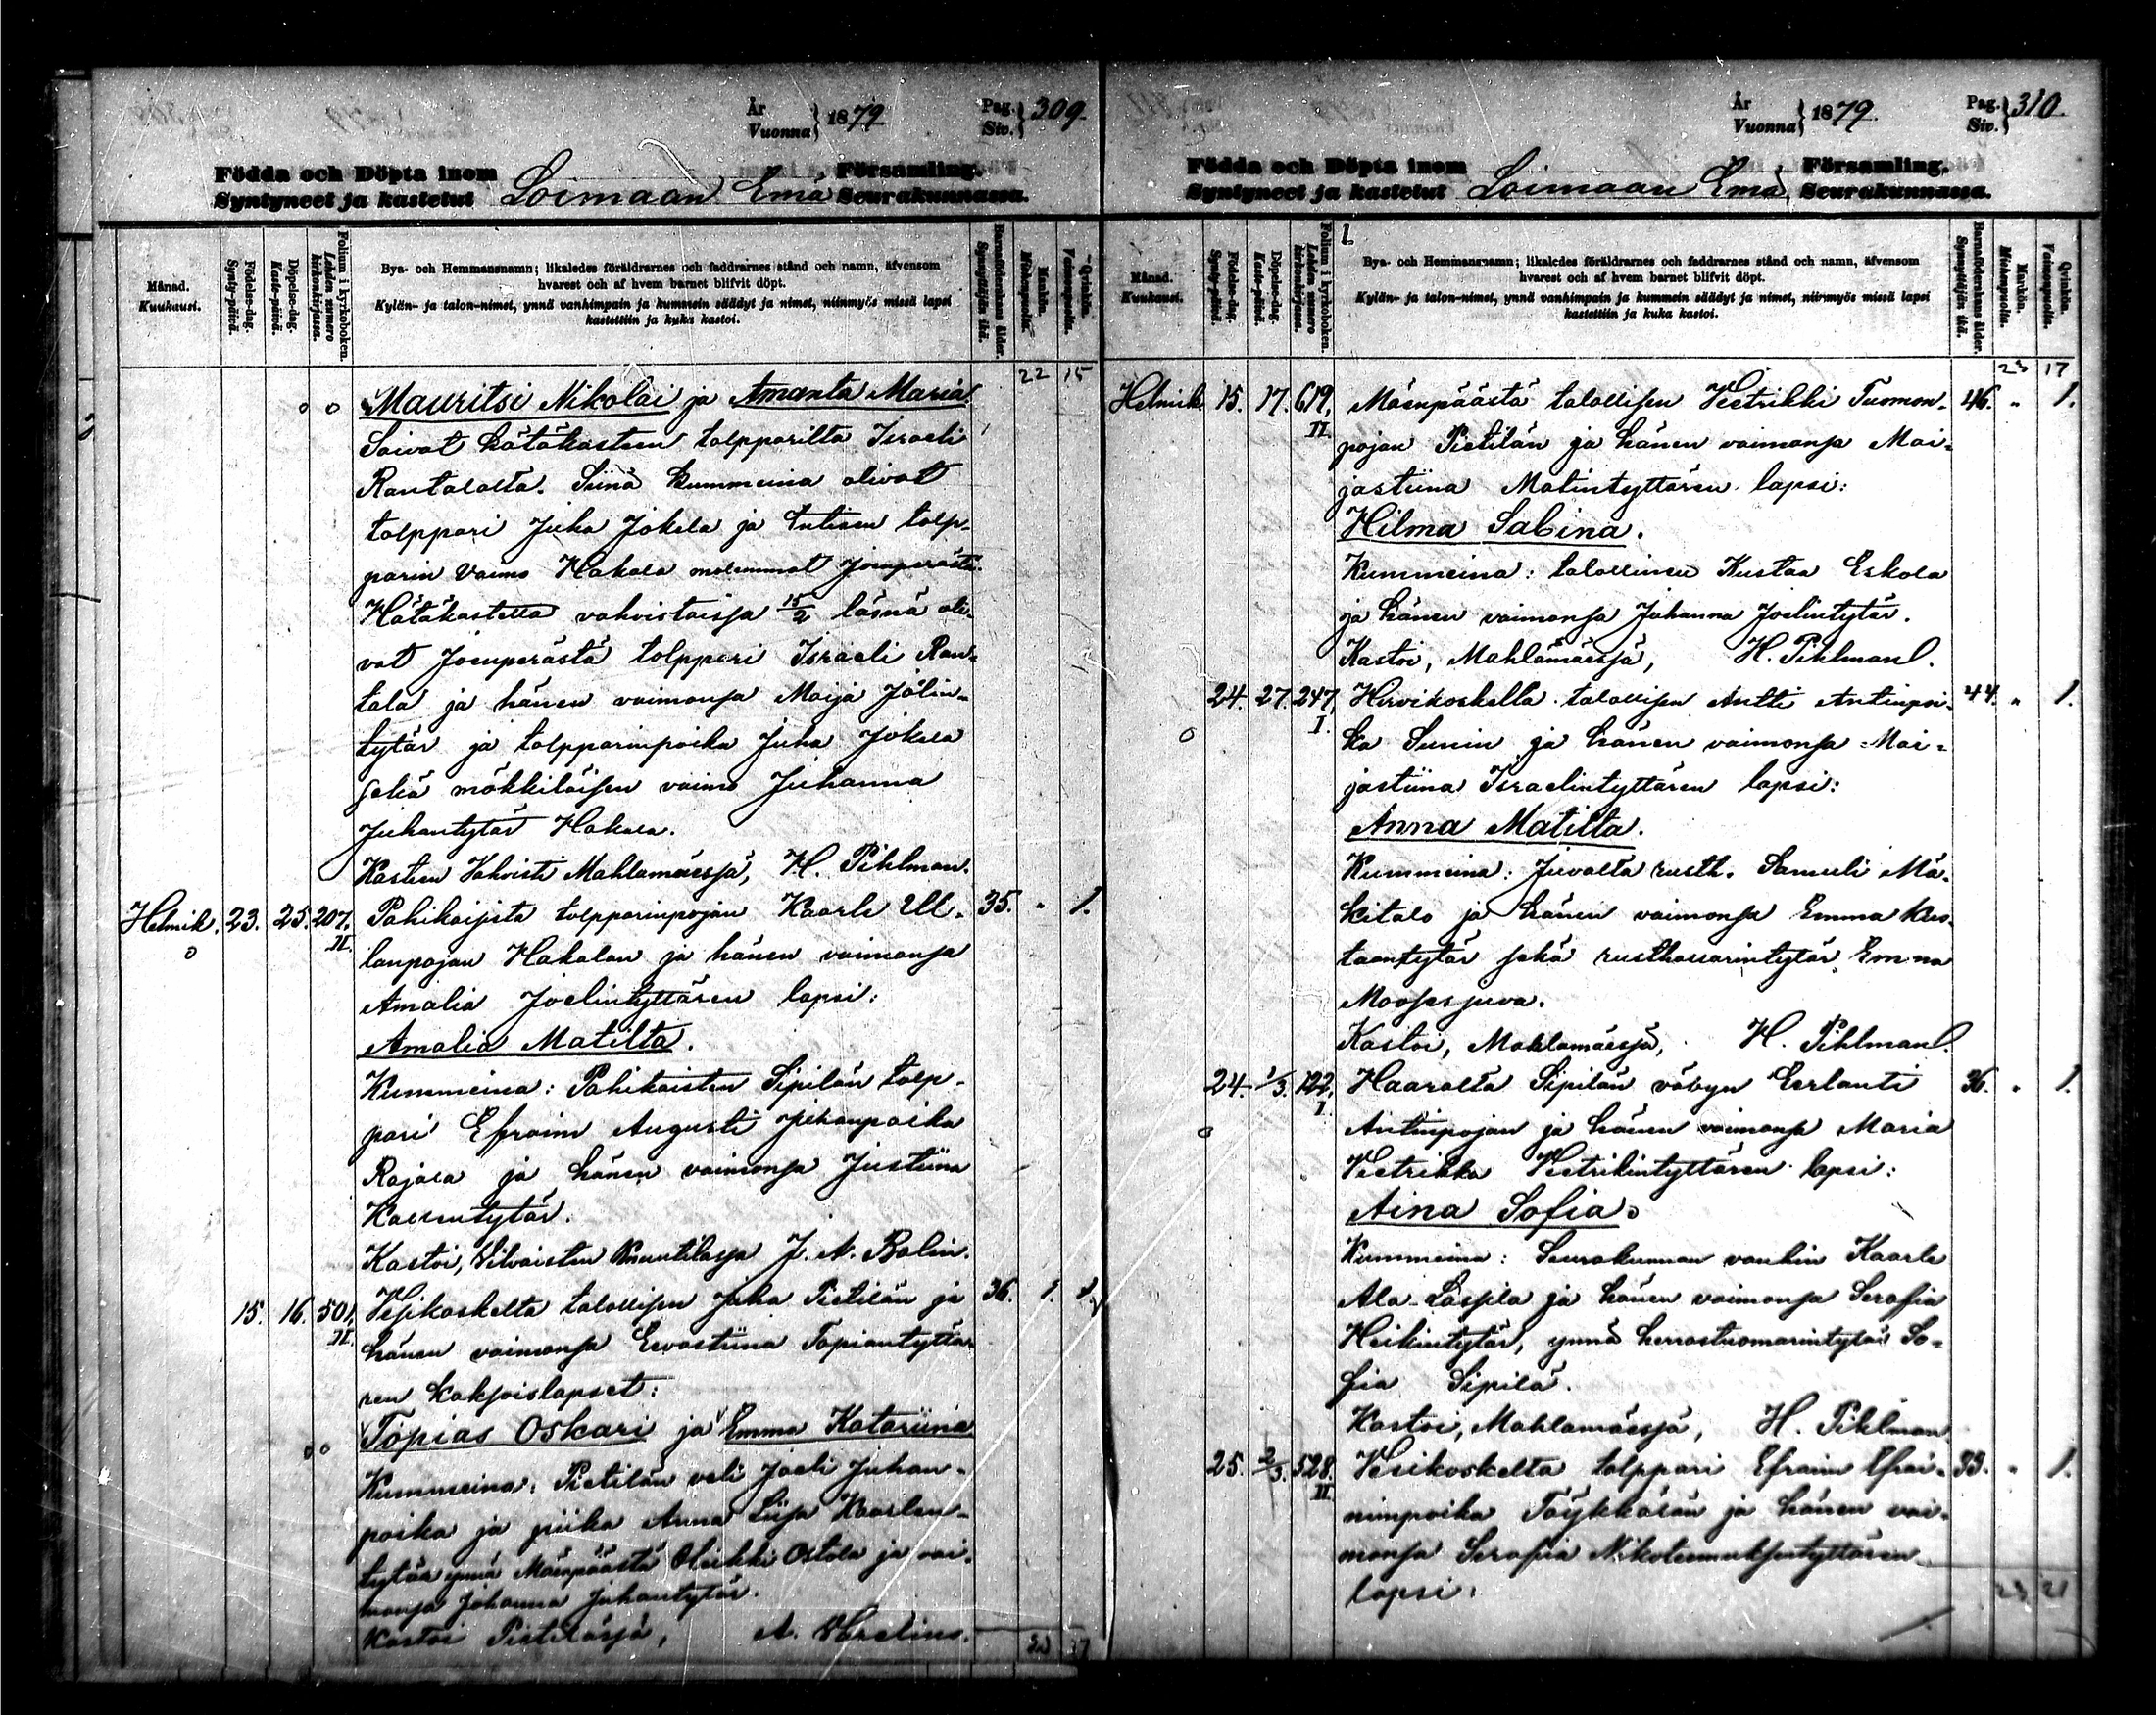 År Vuonna } 1879. Pag. Siv. } 309.
Födda och Döpta inom Församling.
Syntyneet ja kastetut Loimaan Emä Seurakunnassa.
Månad. Kuukausi.
Födelse-dag. Synty-päivä.
Döpelse-dag. Kaste-päivä.
Folium i kyrkoboken. Lehden numero kirkonkirjassa.
Bya- och Hemmansnamn; likaledes föräldrarnes och faddrarnes stånd och namn, äfvensom
hvarest och af hvem barnet blifvit döpt.
Kylän- ja talon-nimet, ynnä vanhimpain ja kummein säädyt ja nimet, niinmyös missä lapsi
kastettiin ja kuka kastoi.
Barnaföderskans ålder. Synnyttäjän ikä.
Mankön. Miehenpuolta.
Qvinkön. Vaimonpuolta.
22 15
Mauritsi Nikolai ja Amanta Maria
Saivat hätäkasteen tolpparilta Israeli
Rantalalta. Siinä kummeina olivat
tolppari Juha Jokela ja entisen tolp-
parin vaimo Hakala molemmat Joenperästä.
Hätäkastetta vahvistaissa 15/2 läsnä oli-
vat Joenperästä tolppari Israeli Ran-
tala ja hänen vaimonsa Maija Jälin-
tytär ja tolpparinpoika Juha Jokela
sekä mökkiläisen vaimo Juhanna
Juhantytär Hakala.
Kasteen Vahvisti Mahlamäessä, H. Pihlman.
Helmik. 23. 25. 207. II. Pahikaisista tolpparinpojan Kaarle Ul- 35. " 1.
lanpojan Hakalan ja hänen vaimonsa
Amalia Joelintyttären lapsi:
Amalia Matilta.
Kummeina: Pahikaisten Sipilän tolp-
pari Efraim Augusti Juhanpoika
Rajala ja hänen vaimonsa Justiina
Kallentytär.
Kastoi, Vilvaisten Knuutilassa J. A. Bolin.
15. 16. 501. II. Vesikoskelta talollisen Juha Pietilän ja 36. 1. 1.
hänen vaimonsa Eevastiina Tapiantyttä-
ren kaksoislapset:
Topias Oskari ja Emma Katariina
Kummeina: Pietilän veli Joeli Juhan-
poika ja piika Anna Liisa Kaarlen-
tytär ynnä Mäenpäästä Heikki Ostola ja vai-
monsa Johanna Juhantytär.
Kastoi Pietilässä, A. Varelius.
23 17
År Vuonna } 1879. Pag. Siv. } 310.
Födda och Döpta inom Församling.
Syntyneet ja kastetut Loimaan Emä Seurakunnassa.
Månad. Kuukausi.
Födelse-dag. Synty-päivä.
Döpelse-dag. Kaste-päivä.
Folium i kyrkoboken. Lehden numero kirkonkirjassa.
Bya- och Hemmansnamn; likaledes föräldrarnes och faddrarnes stånd och namn, äfvensom
hvarest och af hvem barnet blifvit döpt.
Kylän- ja talon-nimet, ynnä vanhimpain ja kummein säädyt ja nimet, niinmyös missä lapsi
kastettiin ja kuka kastoi.
Barnaföderskans ålder. Synnyttäjän ikä.
Mankön. Miehenpuolta.
Qvinkön. Vaimonpuolta.
23 17
Helmik. 15. 17. 619. II Mäenpäästä talollisen Vietrikki Tuomon- 46. " 1.
pojan Pietilän ja hänen vaimonsa Mai-
jastiina Matintyttären lapsi:
Hilma Sabina.
Kummeina: talollinen Kustaa Eskola
ja hänen vaimonsa Juhanna Joelintytär.
Kastoi, Mahlamäessä, H. Pihlman.
24. 27. 247. I. Hirvikoskella talollisen Antti Antinpoi- 44. " 1.
ka Sunin ja hänen vaimonsa Mai-
jastiina Israelintyttären lapsi:
Anna Matilta.
Kummeina: Juvalta rusth. Samuli Mä-
kitalo ja hänen vaimonsa Emma Kus-
taantytär sekä rusthollarintytär Emma
Moosesjuva.
Kastoi, Mahlamäessä, H. Pihlman.
24. 1/3. 122. I. Haaralta Sipilän vävyn Eerlanti 36. " 1.
Antinpojan ja hänen vaimonsa Maria
Vietrikka Vietrikintyttären lapsi:
Aina Sofia.
Kummeina: Seurakunnan vanhin Kaarle
Ala-Lassila ja hänen vaimonsa Serafia
Heikintytär, ynnä herrastuomarintytär So-
fia Sipilä.
Kastoi, Mahlamäessä, H. Pihlman
25. 2/3. 528. II Vesikoskelta tolppari Efraim Efrai- 33. " 1.
minpoika Töykkälän ja hänen vai-
monsa Serafia Nikoteemuksentyttären
lapsi:
23 21